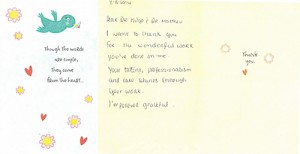 Though the words
are simple,
they come
from the heart...
Dear Dr Philip & Dr
I want to thank you
for the wonderful work
you've done on me.
Your professionalism
and care shines through
your work.
I'm forever grateful.
Thank
you